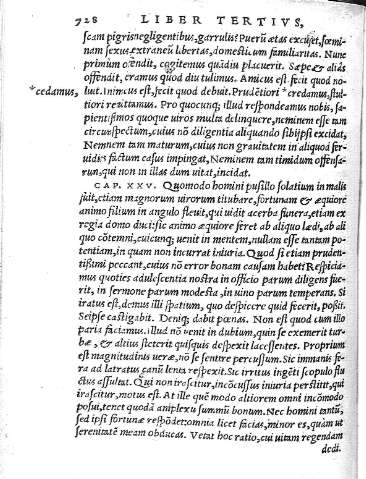 728 LIBER TERTIVS,
scam pigris negligentibus, garrulis? Puerū ætas excuset, fœmi-
nam sexus, extraneū libertas, domesticum familiaritas. Nunc
primum offendit, cogitemus quādiu placuerit. Sæpe & aliás
offendit, feramus quod diu tulimus. Amicus est. fecit quod no-
luit. Inimicus est, fecit quod debuit. Prudētiori *credamus, stul-
*cedamus,
tiori remittamus. Pro quocunq; illud respondeamus nobis, sa-
pientissimos quoque uiros multa delinquere, neminem esse tam
circunspectum, cuius nō diligentia aliquando sibijpsi excidat,
Neminem tam maturum, cuius non grauitatem in aliquod fer-
uidius factum casus impingat, Neminem tam timidum offensa-
rum, qui non in illas dum uitat, incidat.
CAP. XXV. Quomodo homini pusillo solatium in malis
fuit, etiam magnorum uirorum titubare, fortunam & æquiore
animo filium in angulo fleuit, qui uidit acerba funera, etiam ex
regia domo duci: sic animo æquiore feret ab aliquo lædi, ab ali
quo cōtemni, cuicunq; uenit in mentem, nullam esse tantam po-
tentiam, in quam non incurrat iniuria. Quod si etiam pruden-
tissimi peccant, cuius nō error bonam causam habet? Respicia-
mus quoties adulescentia nostra in officio parum diligens fue-
rit, in sermone parum modesta, in uino parum temperans. Si
iratus est, demus illi spatium, quo despicere quid fecerit, possit.
Seipse castigabit. Deniq; dabit pœnas. Non est quod cum illo
paria faciamus. illud nō uenit in dubium, quin se exemerit tur-
bæ, & altius steterit quisquis despexit lacessentes. Proprium
est magnitudinis ueræ, nō se sentire percussum. Sic immanis fe-
ra ad latratus canū lenta respexit. Sic irritus ingēti scopulo flu
ctus assultat. Qui non irascitur, incōcussus iniuria perstitit, qui
irascitur, motus est. At ille quē modo altiorem omni incōmodo
posui, tenet quodā amplexu summū bonum. Nec homini tantū,
sed ipsi fortunæ respōdet: omnia licet facias, minor es, quàm ut
serenitatē meam obducas. Vetat hoc ratio, cui uitam regendam
dedi.